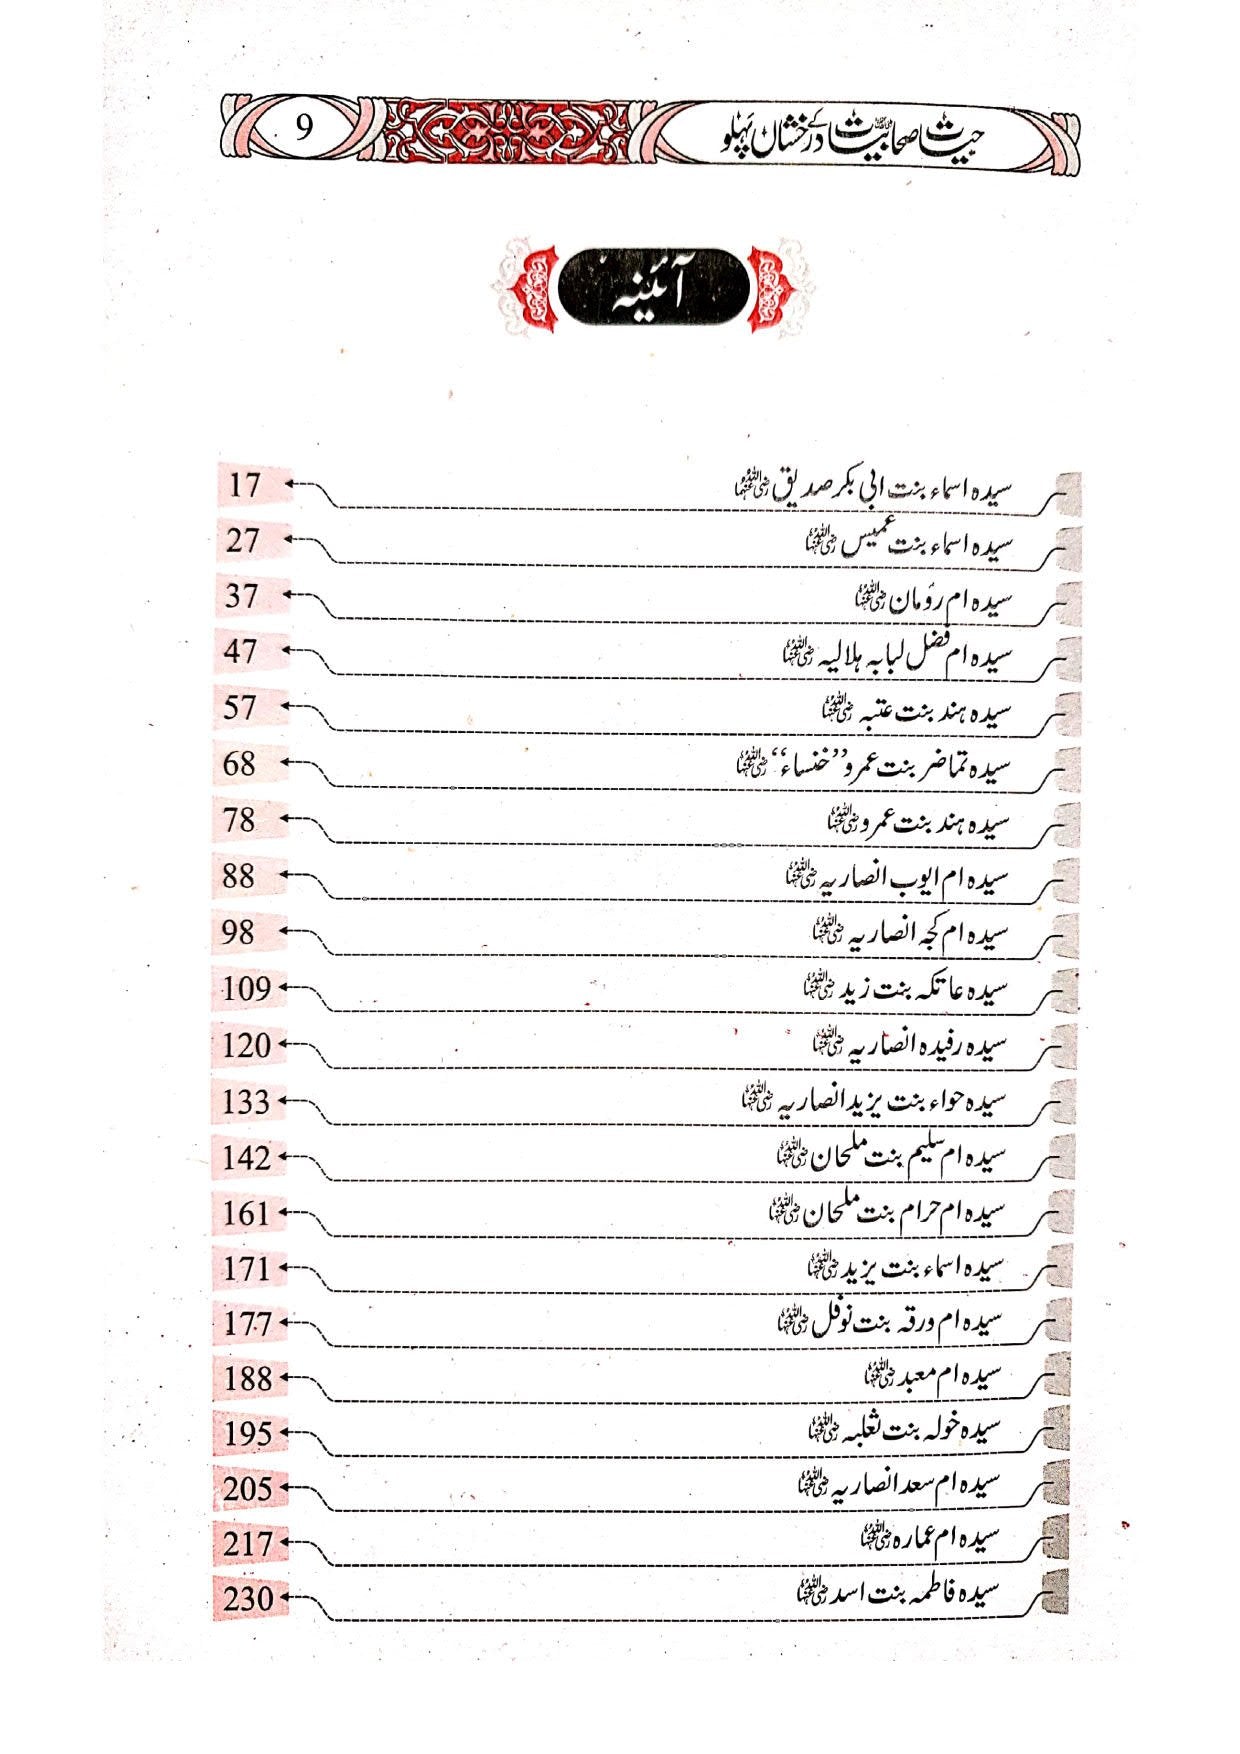 حیات صحابیات رضی اللہ عنہن کے درخشاں پہلو 9
آئینہ
سیدہ اسماء بنت ابی بکر صدیق رضی اللہ عنہا 17
سیدہ اسماء بنت عمیس رضی اللہ عنہا 27
سیدہ ام رُومان رضی اللہ عنہا 37
سیدہ ام فضل لبابہ ہلالیہ رضی اللہ عنہا 47
سیدہ ہند بنت عتبہ رضی اللہ عنہا 57
سیدہ تماضر بنت عمرو ”خنساء“ رضی اللہ عنہا 68
سیدہ ہند بنت عمرو رضی اللہ عنہا 78
سیدہ ام ایوب انصاریہ رضی اللہ عنہا 88
سیدہ ام کجہ انصاریہ رضی اللہ عنہا 98
سیدہ عاتکہ بنت زید رضی اللہ عنہا 109
سیدہ رفیدہ انصاریہ رضی اللہ عنہا 120
سیدہ حواء بنت یزید انصاریہ رضی اللہ عنہا 133
سیدہ ام سلیم بنت ملحان رضی اللہ عنہا 142
سیدہ ام حرام بنت ملحان رضی اللہ عنہا 161
سیدہ اسماء بنت یزید رضی اللہ عنہا 171
سیدہ ام ورقہ بنت نوفل رضی اللہ عنہا 177
سیدہ ام معبد رضی اللہ عنہا 188
سیدہ خولہ بنت ثعلبہ رضی اللہ عنہا 195
سیدہ ام سعد انصاریہ رضی اللہ عنہا 205
سیدہ ام عمارہ رضی اللہ عنہا 217
سیدہ فاطمہ بنت اسد رضی اللہ عنہا 230